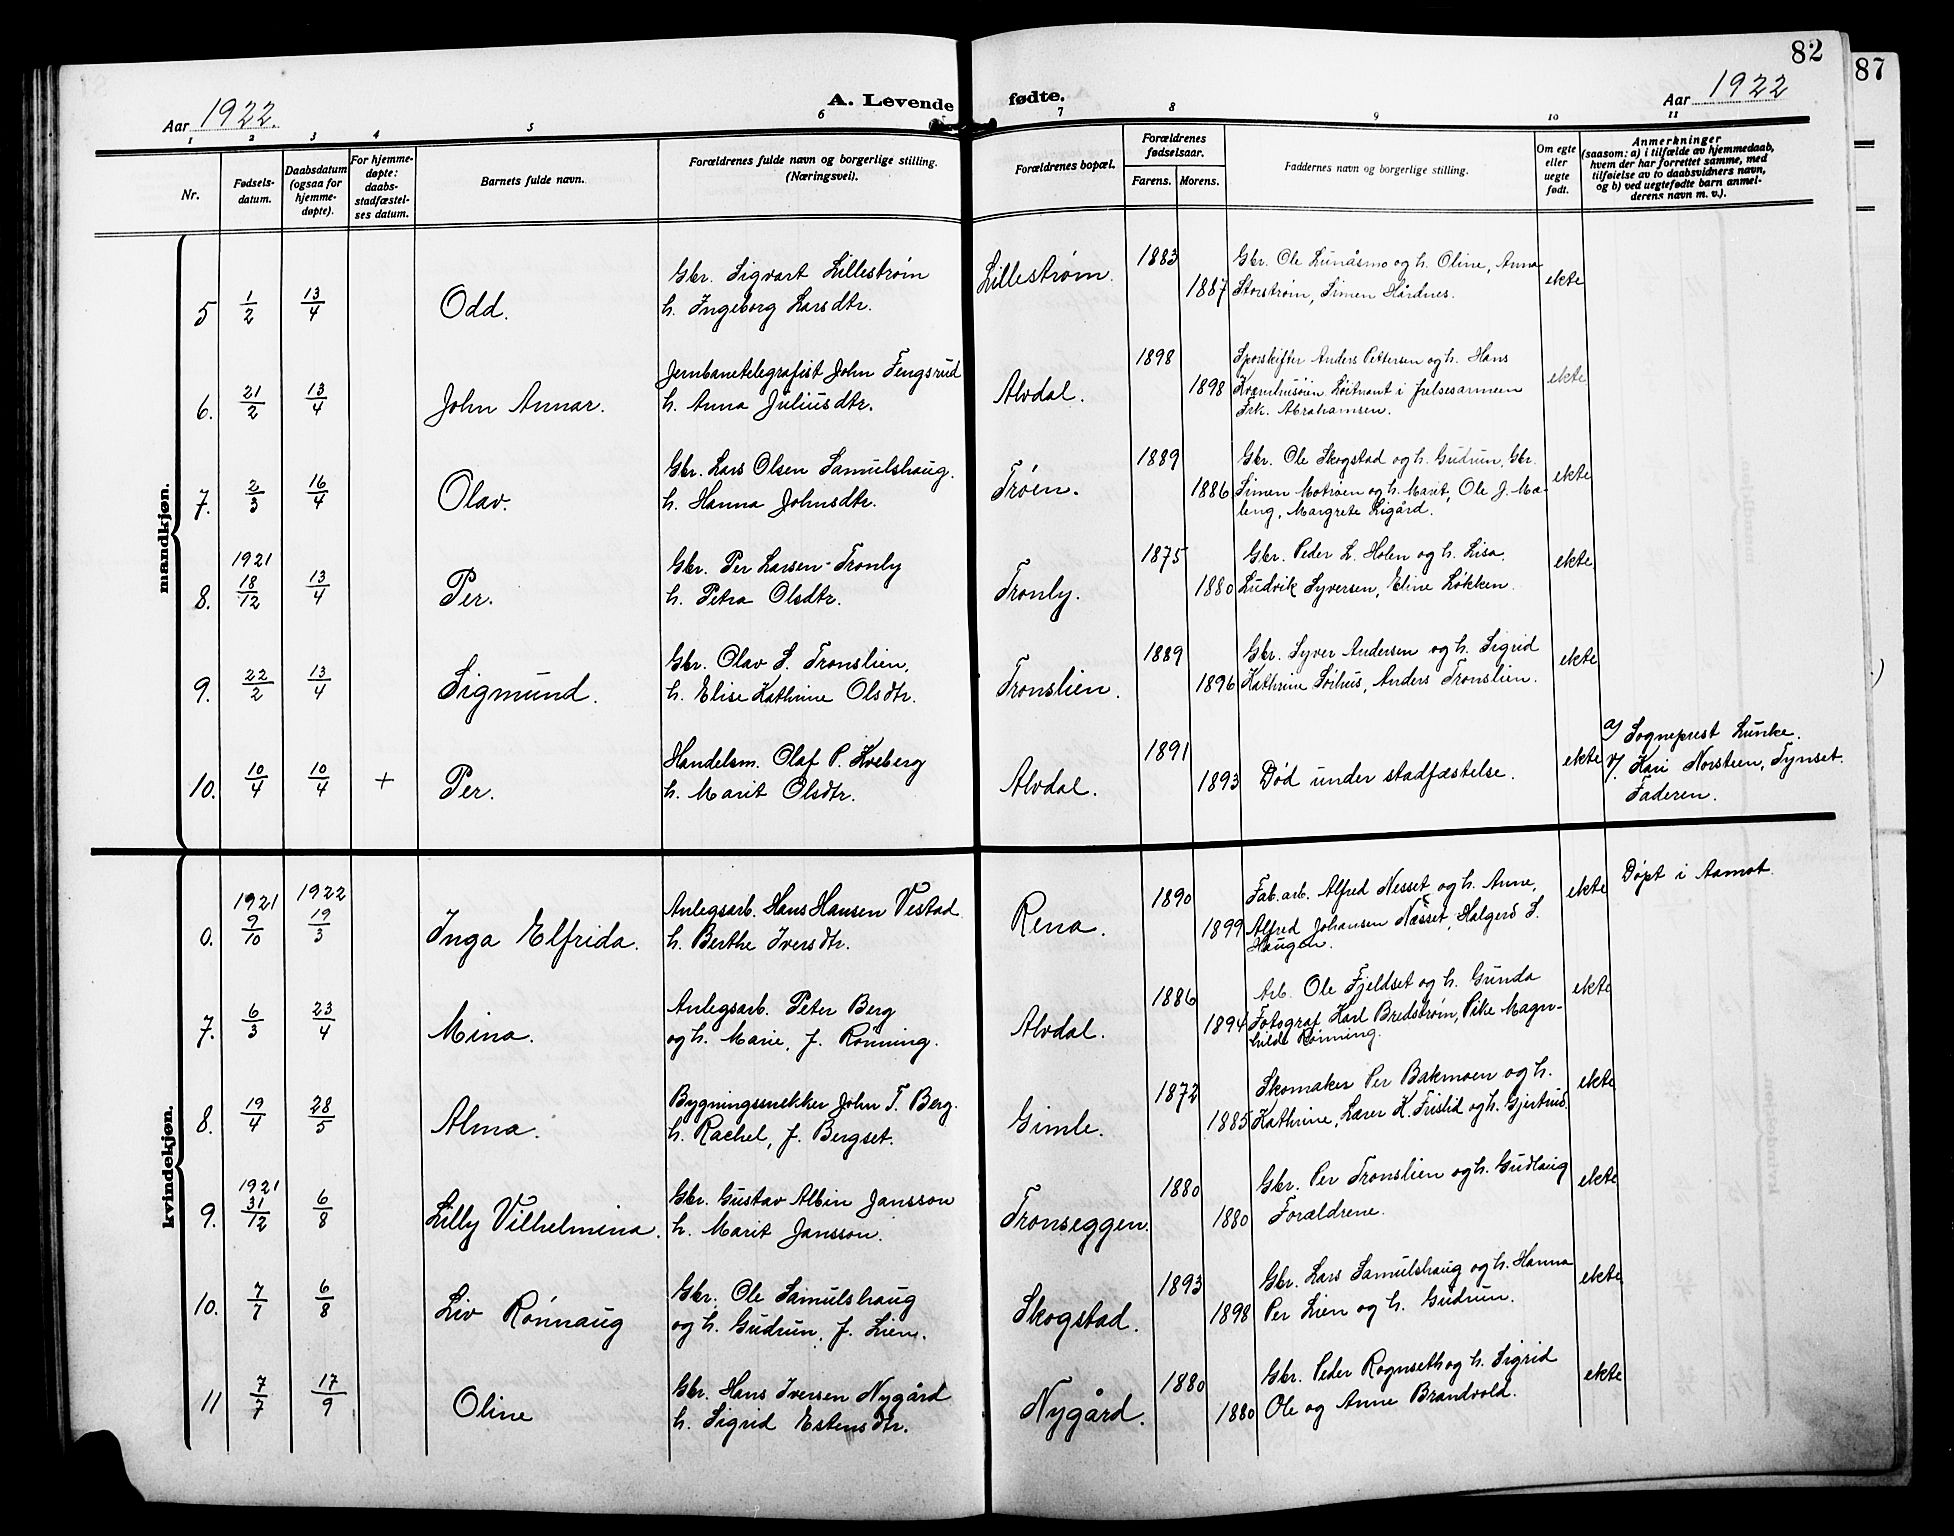 82
87
Aar 1922.
A. Levende fødte.
Aar 1922
1 2 3 4 5 6 7 8 9 10 11
Nr.
Fødsels-
datum.
Daabsdatum
(ogsaa for
hjemme-
døpte).
For hjemme-
døpte:
daabs-
stadfæstel-
ses datum.
Barnets fulde navn.
Forældrenes fulde navn og borgerlige stilling.
(Næringsvei).
Forældrenes bopæl.
Forældrenes
fødselsaar.
Farens. Morens.
Faddernes navn og borgerlige stilling.
Om egte
eller
uegte
født.
Anmerkninger
(saasom: a) i tilfælde av hjemmedaab,
hvem der har forrettet samme, med
tilføielse av to daabsvidners navn,
og b) ved uegtefødte barn anmel-
derens navn m. v.).
mandkjøn.
5 1/2 13/4 Odd.
Gbr. Sigvart Lillestrøm
h. Ingeborg Larsdtr.
Lillestrøm. 1883 1887
Gbr. Ole Lunåsmo og h. Oline, Anna
Storstrøm, Simen Hårdnes.
ekte
6. 21/2 13/4 John Annar.
Jernbanetelegrafist John Fengsrud
h. Anna Juliusdtr.
Alvdal. 1898 1898
Sporskifter Anders Pettersen og h. Hans
Kværnhusøien Løitnant i frelsesarmeen
Frk. Abrahamsen.
ekte
7. 2/3 16/4 Olav.
Gbr. Lars Olsen Samulshaug.
h. Hanna Johnsdtr.
Trøen. 1889 1886
Gbr. Ole Skogstad og h. Gudrun, Gbr.
Simen Motrøen og h. Marit, Ole J. Mo-
leng, Margrete Ligård.
ekte
8. 1921 18/12 13/4 Per.
Gbr. Per Larsen-Tronly
h. Petra Olsdtr.
Tronly. 1875 1880
Gbr. Peder L. Holen og h. Lisa.
Ludvik Syversen, Eline Løkken.
ekte
9. 22/2 13/4 Sigmund.
Gbr. Olav S. Tronslien,
h. Elise Kathrine Olsdtr.
Tronslien. 1889 1896
Gbr. Syver Andersen og h. Sigrid
Kathrine Søihus, Anders Tronslien.
ekte
10. 10/4 10/4 + Per.
Handelsm. Olaf P. Kveberg
h. Marit Olsdtr.
Alvdal. 1891 1893
Død under stadfæstelse.
ekte
a/ Sogneprest Lunke.
Kari Norsteen, Tynset.
Faderen.
kvindekjøn.
0. 1921 9/10 1922 19/3 Inga Elfrida.
Anlegsarb. Hans Hansen Vestad
h. Berthe Iversdtr.
Rena. 1890 1899
Fab.arb. Alfred Nesset og h. Anne,
Alfred Johansen Næsset, Halgerd S.
Haugen.
ekte
Døpt i Aamot.
7. 6/3 23/4 Mina.
Anlegsarb. Peter Berg
og h. Marie, f. Rønning.
Alvdal. 1886 1894
Arb. Ole Fjeldset og h. Gunda
Fotograf Karl Bredstrøm, Pike Magn-
hilde Rønning.
ekte
8. 19/4 28/5 Alma.
Bygningssnekker John T. Berg.
h. Rachel, f. Bergset.
Gimle. 1872 1885
Skomaker Per Bakmoen og h.
Kathrine, Lærer K. Frislid og h. Gjertrud.
ekte
9. 1921 31/12 6/8 Lilly Vilhelmina.
Gbr. Gustav Albin Jansson
h. Marit Jansson.
Tronseggen. 1880 1880
Gbr. Per Tronslien og h. Gudlaug
Forældrene.
ekte
10. 7/7 6/8 Liv Rønnaug
Gbr. Ole Samulshaug
og h. Gudrun, f. Lien.
Skogstad. 1893 1898
Gbr. Lars Samulshaug og h. Hanna
Per Lien og h. Gudrun.
ekte
11 7/7 17/9 Oline
Gbr. Hans Iversen Nygård
h. Sigrid Estensdtr.
Nygård. 1880 1880
Gbr. Peder Rognseth og h. Sigrid
Ole og Anne Brandvold.
ekte